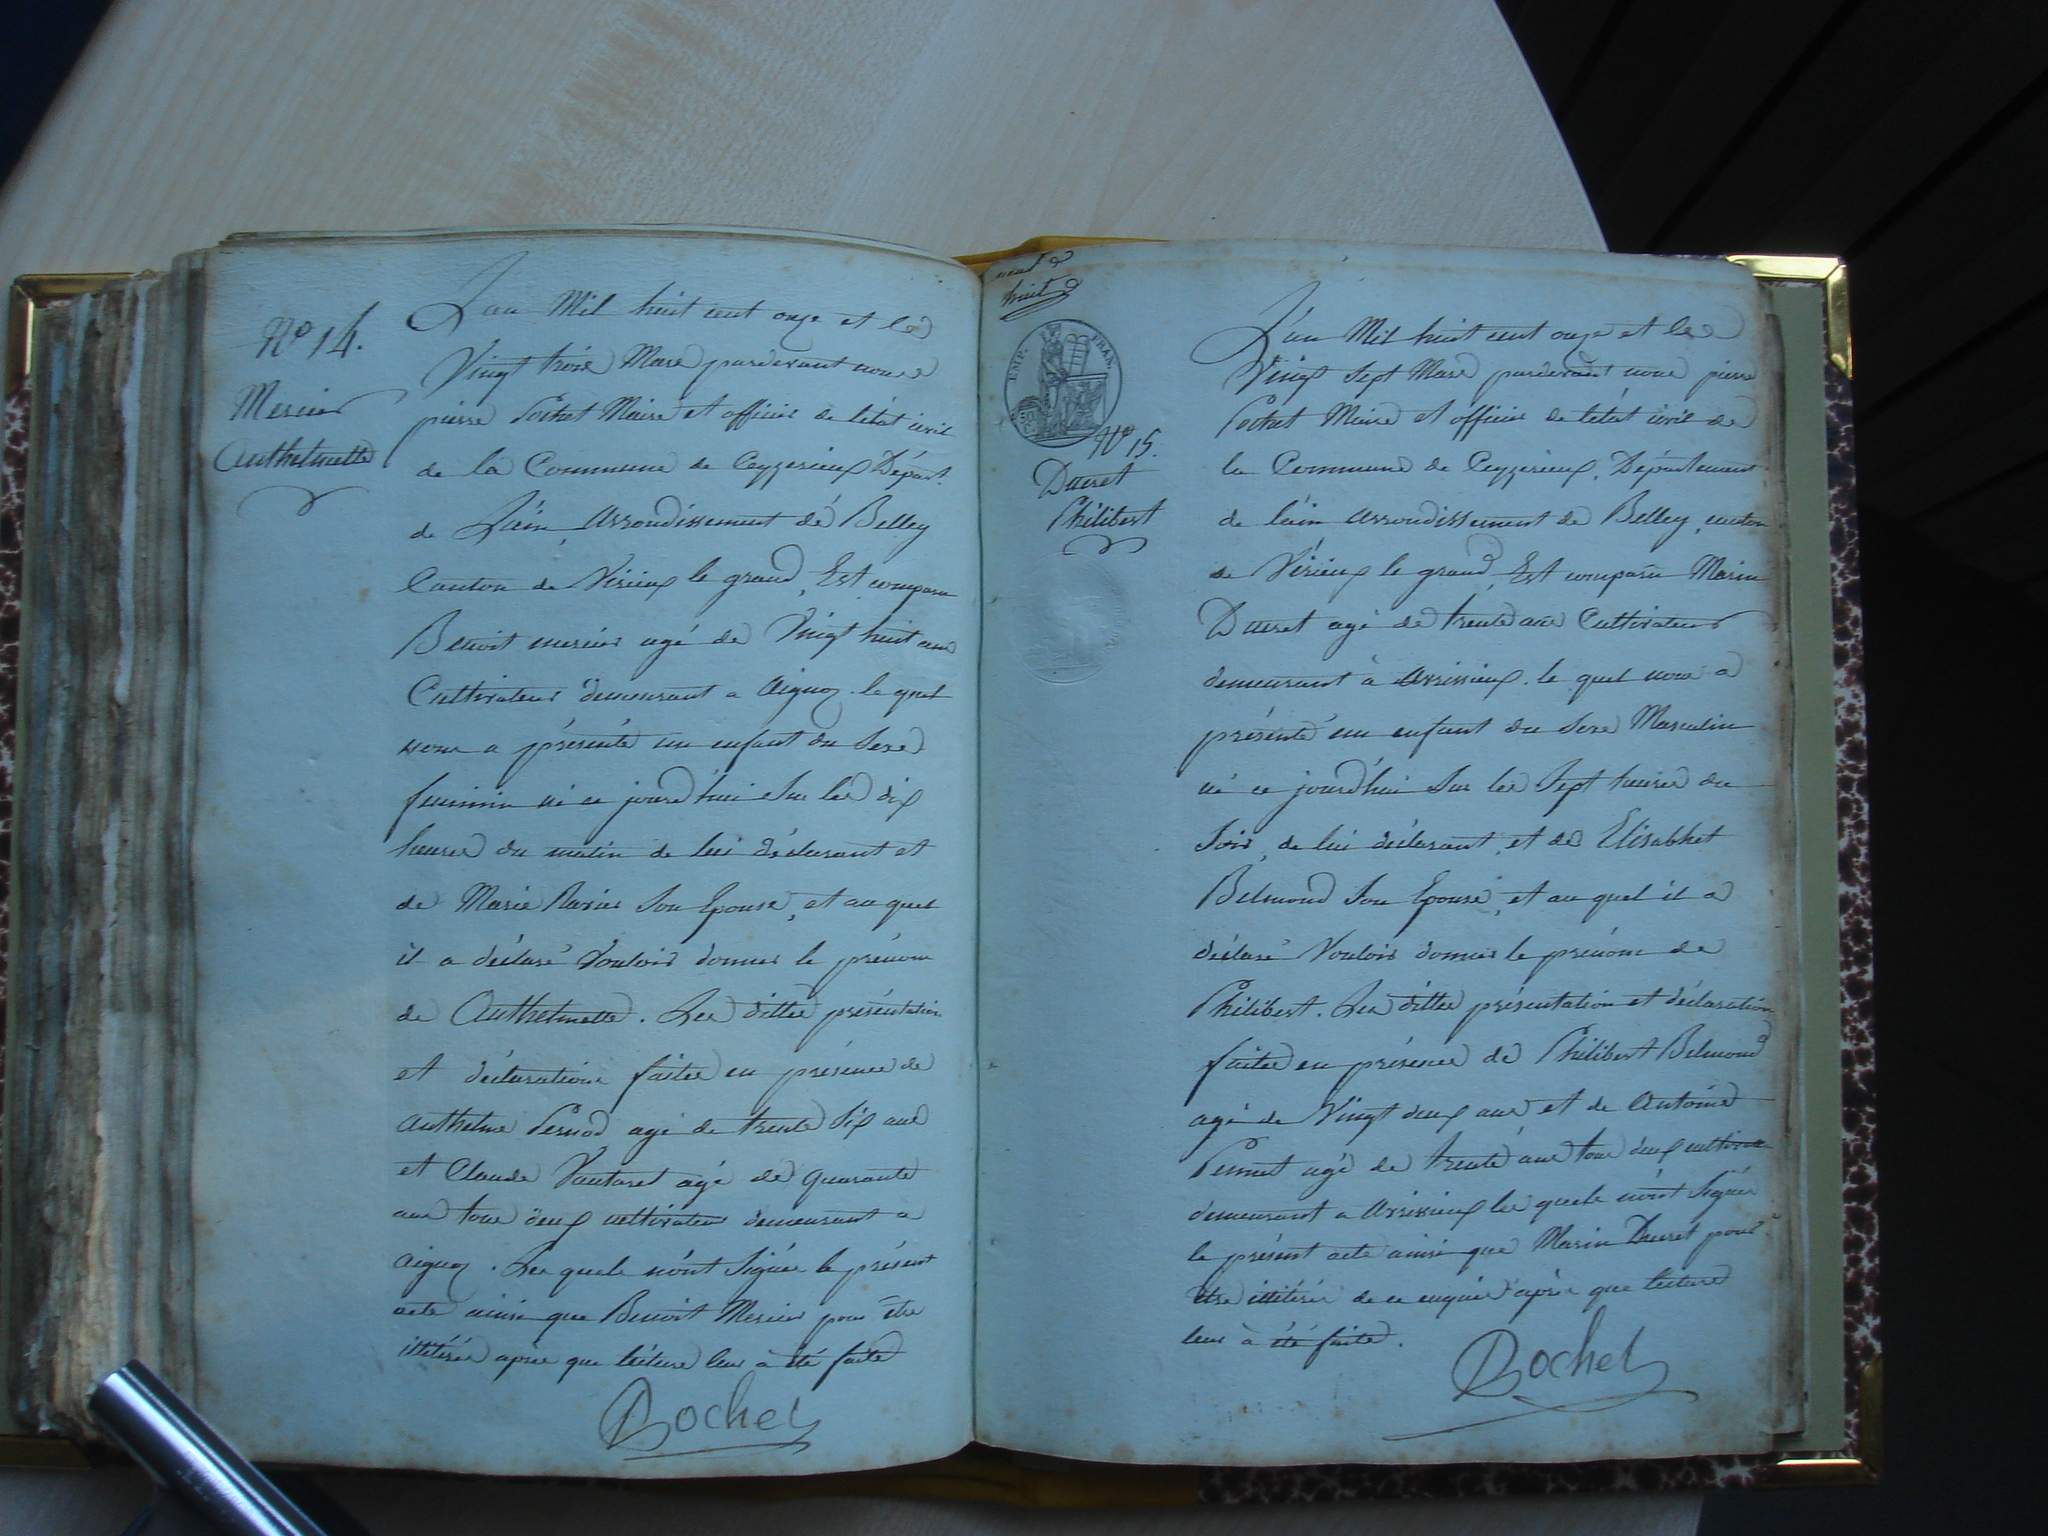 N° 14.
Mercier
Anthelmette
L'an Mil huit cent onze et le
Vingt trois Mars pardevant nous
pierre Pochet Maire et officier de l'état civil
de la Commune de Ceyzerieux Départ.
de L'ain, Arrondissement dé Belley
Canton de Virieux le grand, Est comparu
Benoit mercier agé de Vingt huit ans
Cultivateur demeurant a Aignoz le quel
nous a présenté un enfant du Sexe
feminin né ce jourd'hui Sur les dix
heures du matin de lui déclarant et
de Marie Ravier Son Epouse, et au quel
il a déclaré Vouloir donner le prénom
de Anthelmette. Les dittes présentation
et déclaration faites en présence de
Anthelme Pernod agé de trente Six ans
et Claude Vautaret agé de quarante
ans tous deux cultivateur demeurant a
Aignoz. Les quels n'ont Signés le présent
acte ainsi que Benoit Mercier pour être
illitérés après que lécture leur à été faite
Pochet
huit
EMP. FRAN.
N° 15.
Ducret
Philibert
L'an Mil huit cent onze et le
Vingt Sept Mars pardevant nous pierre
Pochet Maire et officier de l'état civil de
la Commune de Ceyzerieux, Département
de l'ain Arrondissement de Belley, canton
de Virieux le grand, Est comparu Marin
Ducret agé de trente ans Cultivateur
demeurant à Avrissieux. le quel nous a
présenté un enfant du Sexe Masculin
né ce jourd'hui Sur les Sept heures du
Soir, de lui déclarant, et de Elisabhet
Belmond Son Epouse, et au quel il a
déclaré Vouloir donner le prénom de
Philibert. Les dittes présentation et déclaration
faites en présence de Philibert Belmond
agé de Vingt deux ans et de Antoine
Pennet agé de trente ans tous deux
demeurant a Avrissieux les quels n'ont Signés
le présent acte ainsi que Marin Ducret pour
être illitérés de ce enquis après que lecture
leur à été faite.
Pochet